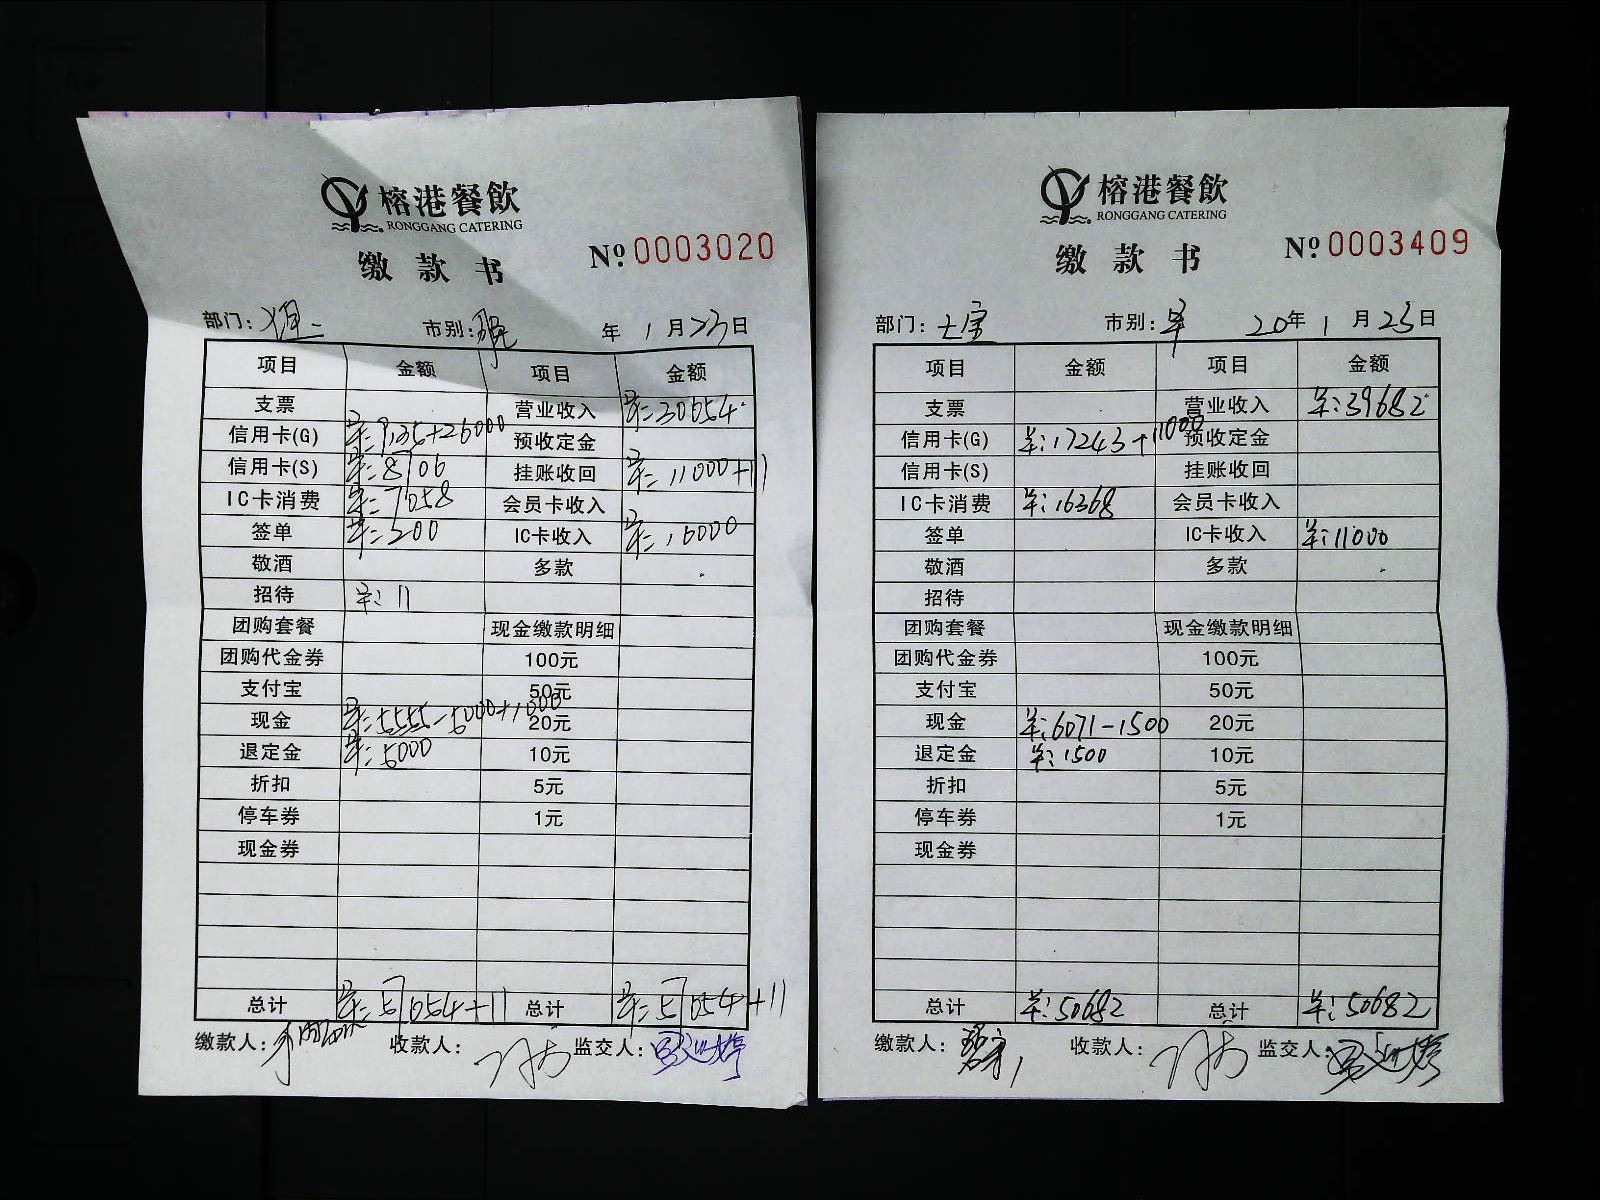 榕港餐飲
RONGGANG CATERING
缴款书
№ 0003020
部门: 市别: 年 1月23日
项目 金额 项目 金额
支票 营业收入 30654
信用卡(G) +26000 预收定金
信用卡(S) 8706 挂账收回 11000+11
IC卡消费 7058 会员卡收入
签单 IC卡收入 16000
敬酒 多款
招待 11
团购套餐 现金缴款明细
团购代金券 100元
支付宝 50元
现金 5555-5000+1000 20元
退定金 5000 10元
折扣 5元
停车券 1元
现金券
总计 57654+11 总计 57654+11
缴款人: 收款人: 监交人:
榕港餐飲
RONGGANG CATERING
缴款书
№ 0003409
部门: 市别: 20年 1月23日
项目 金额 项目 金额
支票 营业收入 39682
信用卡(G) 17243+11000 预收定金
信用卡(S) 挂账收回
IC卡消费 16368 会员卡收入
签单 IC卡收入 11000
敬酒 多款
招待
团购套餐 现金缴款明细
团购代金券 100元
支付宝 50元
现金 6071-1500 20元
退定金 1500 10元
折扣 5元
停车券 1元
现金券
总计 50682 总计 50682
缴款人: 收款人: 监交人: